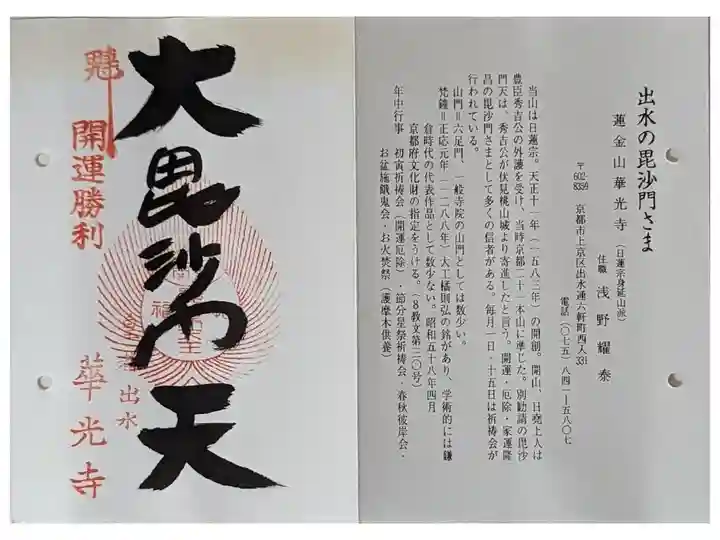 出水の毘沙門さま
蓮金山華光寺（日蓮宗身延山派）
住職 浅野耀泰
〒602-8359 京都市上京区出水通六軒町西入331
電話（〇七五）八四一―五八〇七
当山は日蓮宗。天正十一年（一五八三年）の開創。開山、日堯上人は
豊臣秀吉公の外護を受け、当時京都二十一本山に準じた。別勧請の毘沙
門天は、秀吉公が伏見桃山城より寄進したと言う。開運・厄除・家運隆
昌の毘沙門さまとして多くの信者がある。毎月一日・十五日は祈祷会が
行われている。
山門＝六足門、一般寺院の山門としては数少い。
梵鐘＝正応元年（一二八八年）大工橘則弘の銘があり、学術的には鎌
倉時代の代表作品として数少ない。昭和五十八年四月
京都府文化財の指定をうける。（8教文第三〇号）
年中行事 初寅祈祷会（開運厄除）・節分星祭祈祷会・春秋彼岸会・
お盆施餓鬼会・お火焚祭（護摩木供養）
大毘沙門天
開運勝利
出水
華光寺